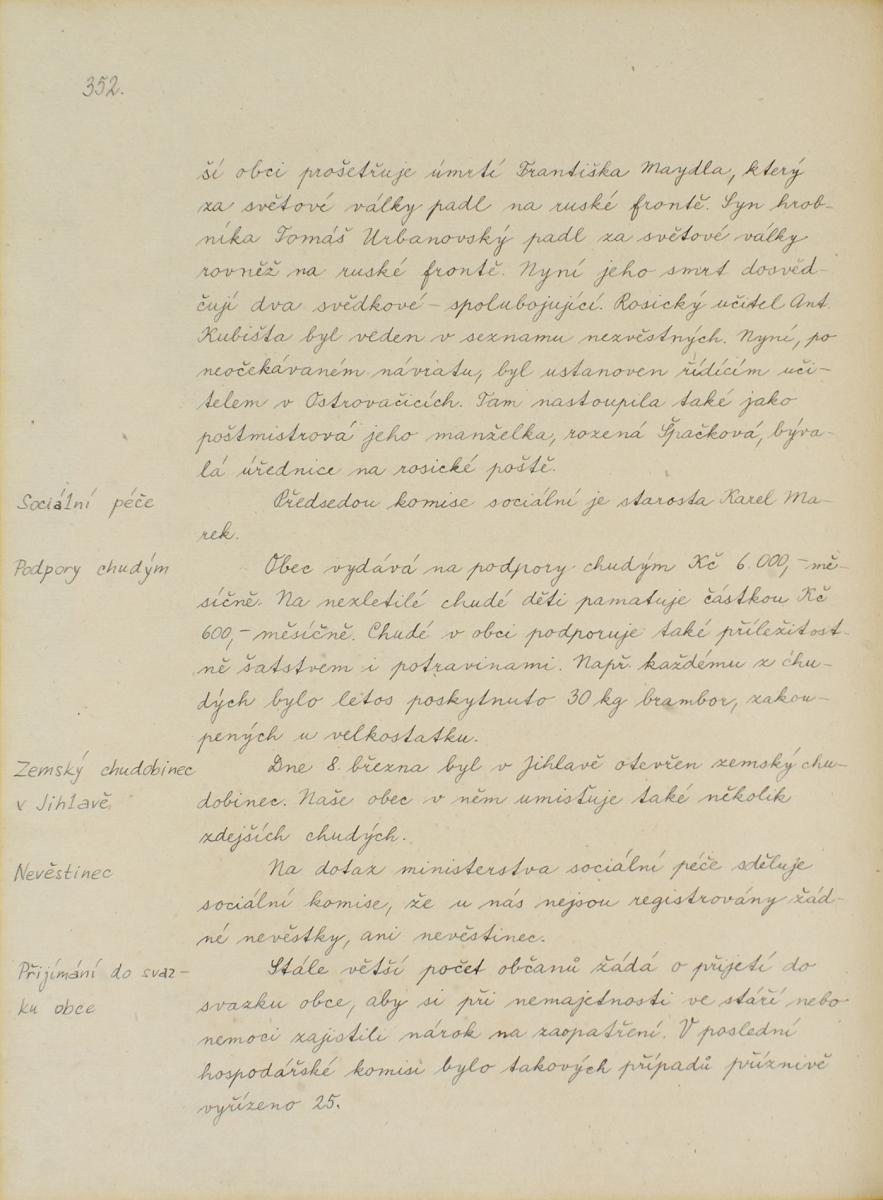 352.
ší obci prošetřuje úmrtí Františka Maydla, který
za světové války padl na ruské frontě. Syn hrob-
níka Tomáš Urbanovský padl za světové války
rovněž na ruské frontě. Nyní jeho smrt dosvěd-
čují dva svědkové – spolubojující. Rosický učitel Ant.
Kubišta byl veden v seznamu nezvěstných. Nyní, po
neočekávaném návratu, byl ustanoven řídícím uči-
telem v Ostrovačicích. Tam nastoupila také jako
poštmistrová jeho manželka, rozená Špačková, býva-
lá úřednice na rosické poště.
Sociální péče
Předsedou komise sociální je starosta Karel Ma-
rek.
Podpory chudým
Obec vydává na podpory chudým Kč 6.000,- mě-
síčně. Na nezletilé chudé děti pamatuje částkou Kč
600,- měsíčně. Chudé v obci podporuje také příležitost-
ně šatstvem i potravinami. Např. každému z chu-
dých bylo letos poskytnuto 30 kg brambor, zakou-
pených u velkostatku.
Zemský chudobinec
v Jihlavě
Dne 8. března byl v Jihlavě otevřen zemský chu-
dobinec. Naše obec v něm umisťuje také několik
zdejších chudých.
Nevěstinec
Na dotaz ministerstva sociální péče sděluje
sociální komise, že u nás nejsou registrovány žád-
né nevěstky, ani nevěstinec.
Přijímání do svaz-
ku obce
Stále větší počet občanů žádá o přijetí do
svazku obce, aby si při nemajetnosti ve stáří nebo
nemoci zajistili nárok na zaopatření. V poslední
hospodářské komisi bylo takových případů příznivě
vyřízeno 25.